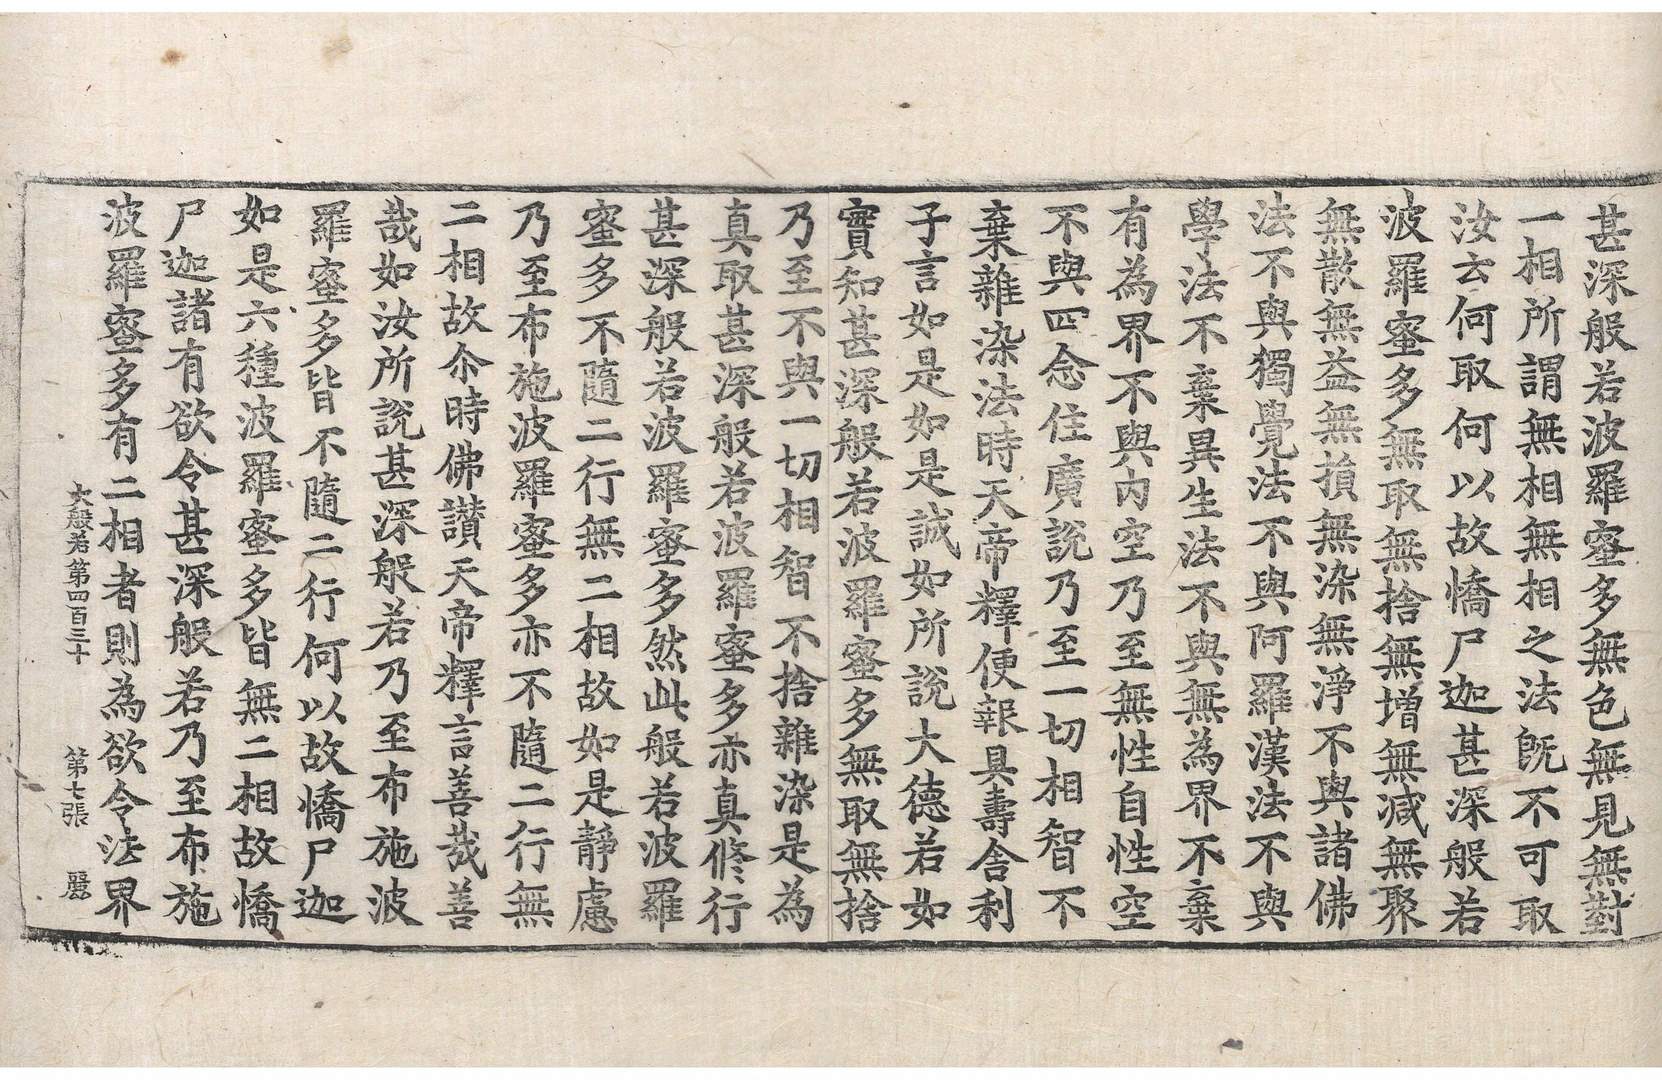 甚深般若波羅蜜多無色無見無對
一相所謂無相無相之法旣不可取
汝云何取何以故憍尸迦甚深般若
波羅蜜多無取無捨無增無減無聚
無散無益無損無染無淨不與諸佛
法不與獨覺法不與阿羅漢法不與
學法不棄異生法不與無為界不棄
有為界不與內空乃至無性自性空
不與四念住廣說乃至一切相智不
棄雜染法時天帝釋便報具壽舍利
子言如是如是誠如所說大德若如
實知甚深般若波羅蜜多無取無捨
乃至不與一切相智不捨雜染是為
真取甚深般若波羅蜜多亦真修行
甚深般若波羅蜜多然此般若波羅
蜜多不隨二行無二相故如是靜慮
乃至布施波羅蜜多亦不隨二行無
二相故尒時佛讚天帝釋言善哉善
哉如汝所說甚深般若乃至布施波
羅蜜多皆不隨二行何以故憍尸迦
如是六種波羅蜜多皆無二相故憍
尸迦諸有欲令甚深般若乃至布施
波羅蜜多有二相者則為欲令法界
大般若第四百三十 第七張 麗